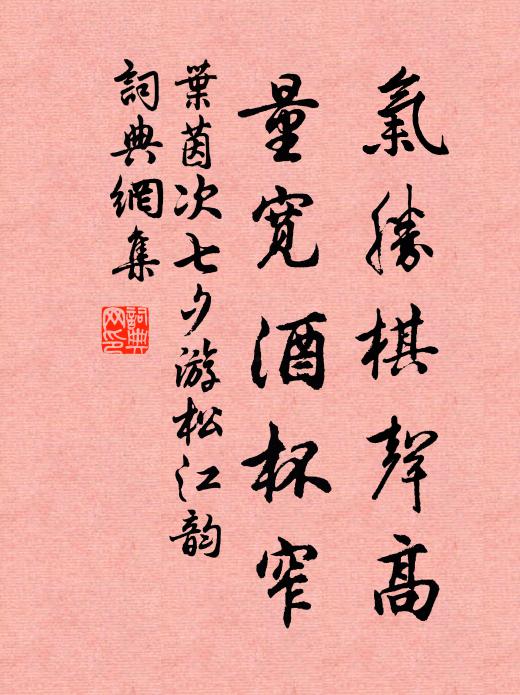 氣勝棋聲高
量寬酒杯窄
葉茵次七夕游松江韵
詞典網集
詞典網印